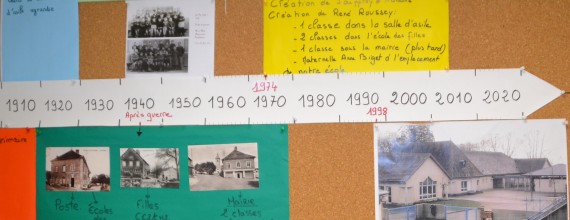 d'asile agrandie
Création de René Roussey:
- 1 classe dans la salle d'asile
- 2 classes dans l'école des filles
- 1 classe sous la mairie (plus tard)
- Maternelle Anne Biget à l'emplacement
de notre école
1974
1910 1920 1930 1940 1950 1960 1970 1980 1990 2000 2010 2020
Après guerre
1998
Poste
École
Filles
Mairie
2 classes